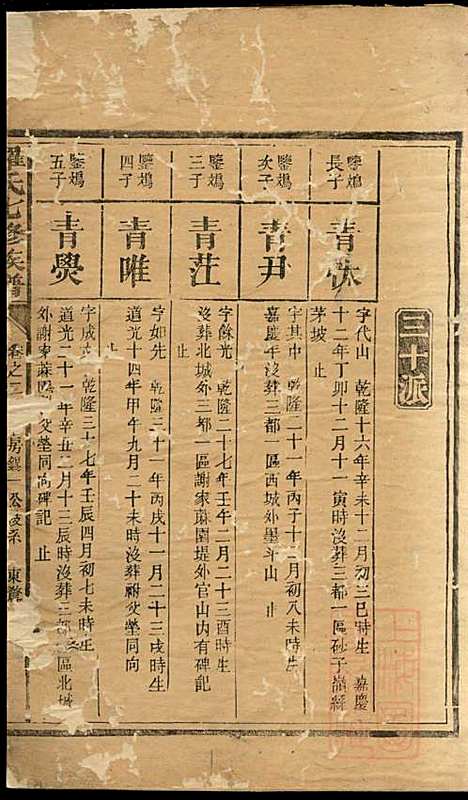 三十派
鑒鴆長子
青烋
字代山 乾隆十六年辛未十二月初三巳時生 嘉慶
十二年丁卯十二月十一寅時沒葬三都一區砂子嶺絲
茅坡 止
鑒鴆次子
青尹
字其中 乾隆二十一年丙子十二月初八未時生
嘉慶 年沒葬三都一區西城外墨斗山 止
鑒鴆三子
青茳
字餘光 乾隆二十七年壬午二月二十三酉時生
沒葬北城外三都一區謝家蔴園堤外官山內有碑記
止
鑒鴆四子
青唯
字如先 乾隆三十一年丙戌十一月二十三戌時生
道光十四年甲午九月二十未時沒葬祔父塋同向
止
鑒鴆五子
青㷟
字成 乾隆三十七年壬辰四月初七未時生
道光二十一年辛丑二月十三辰時沒葬三都 區北城
外謝家蔴 父塋同向碑記 止
氏七修族譜
卷之三
房 公 系